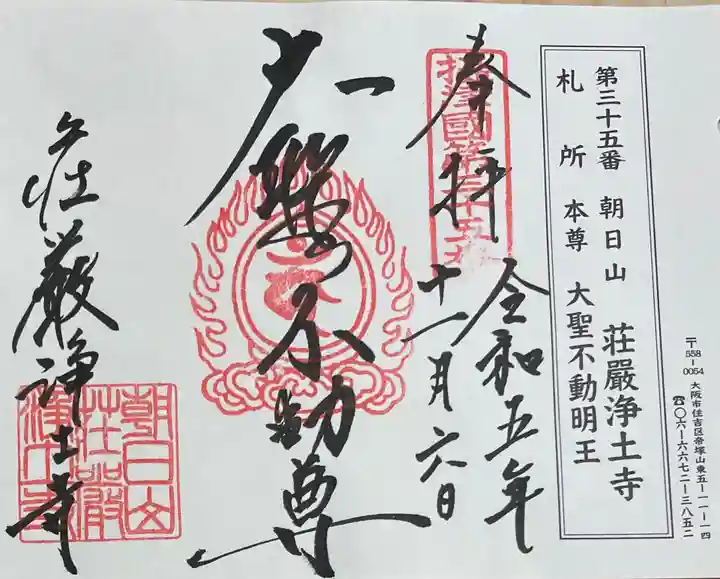 〒558-0054 大阪市住吉区帝塚山東五-一一-一四
☎〇六-六六七二-三八五二
第三十五番 朝日山 荘嚴浄土寺
札所本尊 大聖不動明王
奉拝
摂津國第三十五番
令和五年
十一月六日
不動尊
荘厳浄土寺
朝日山
荘嚴
浄土寺